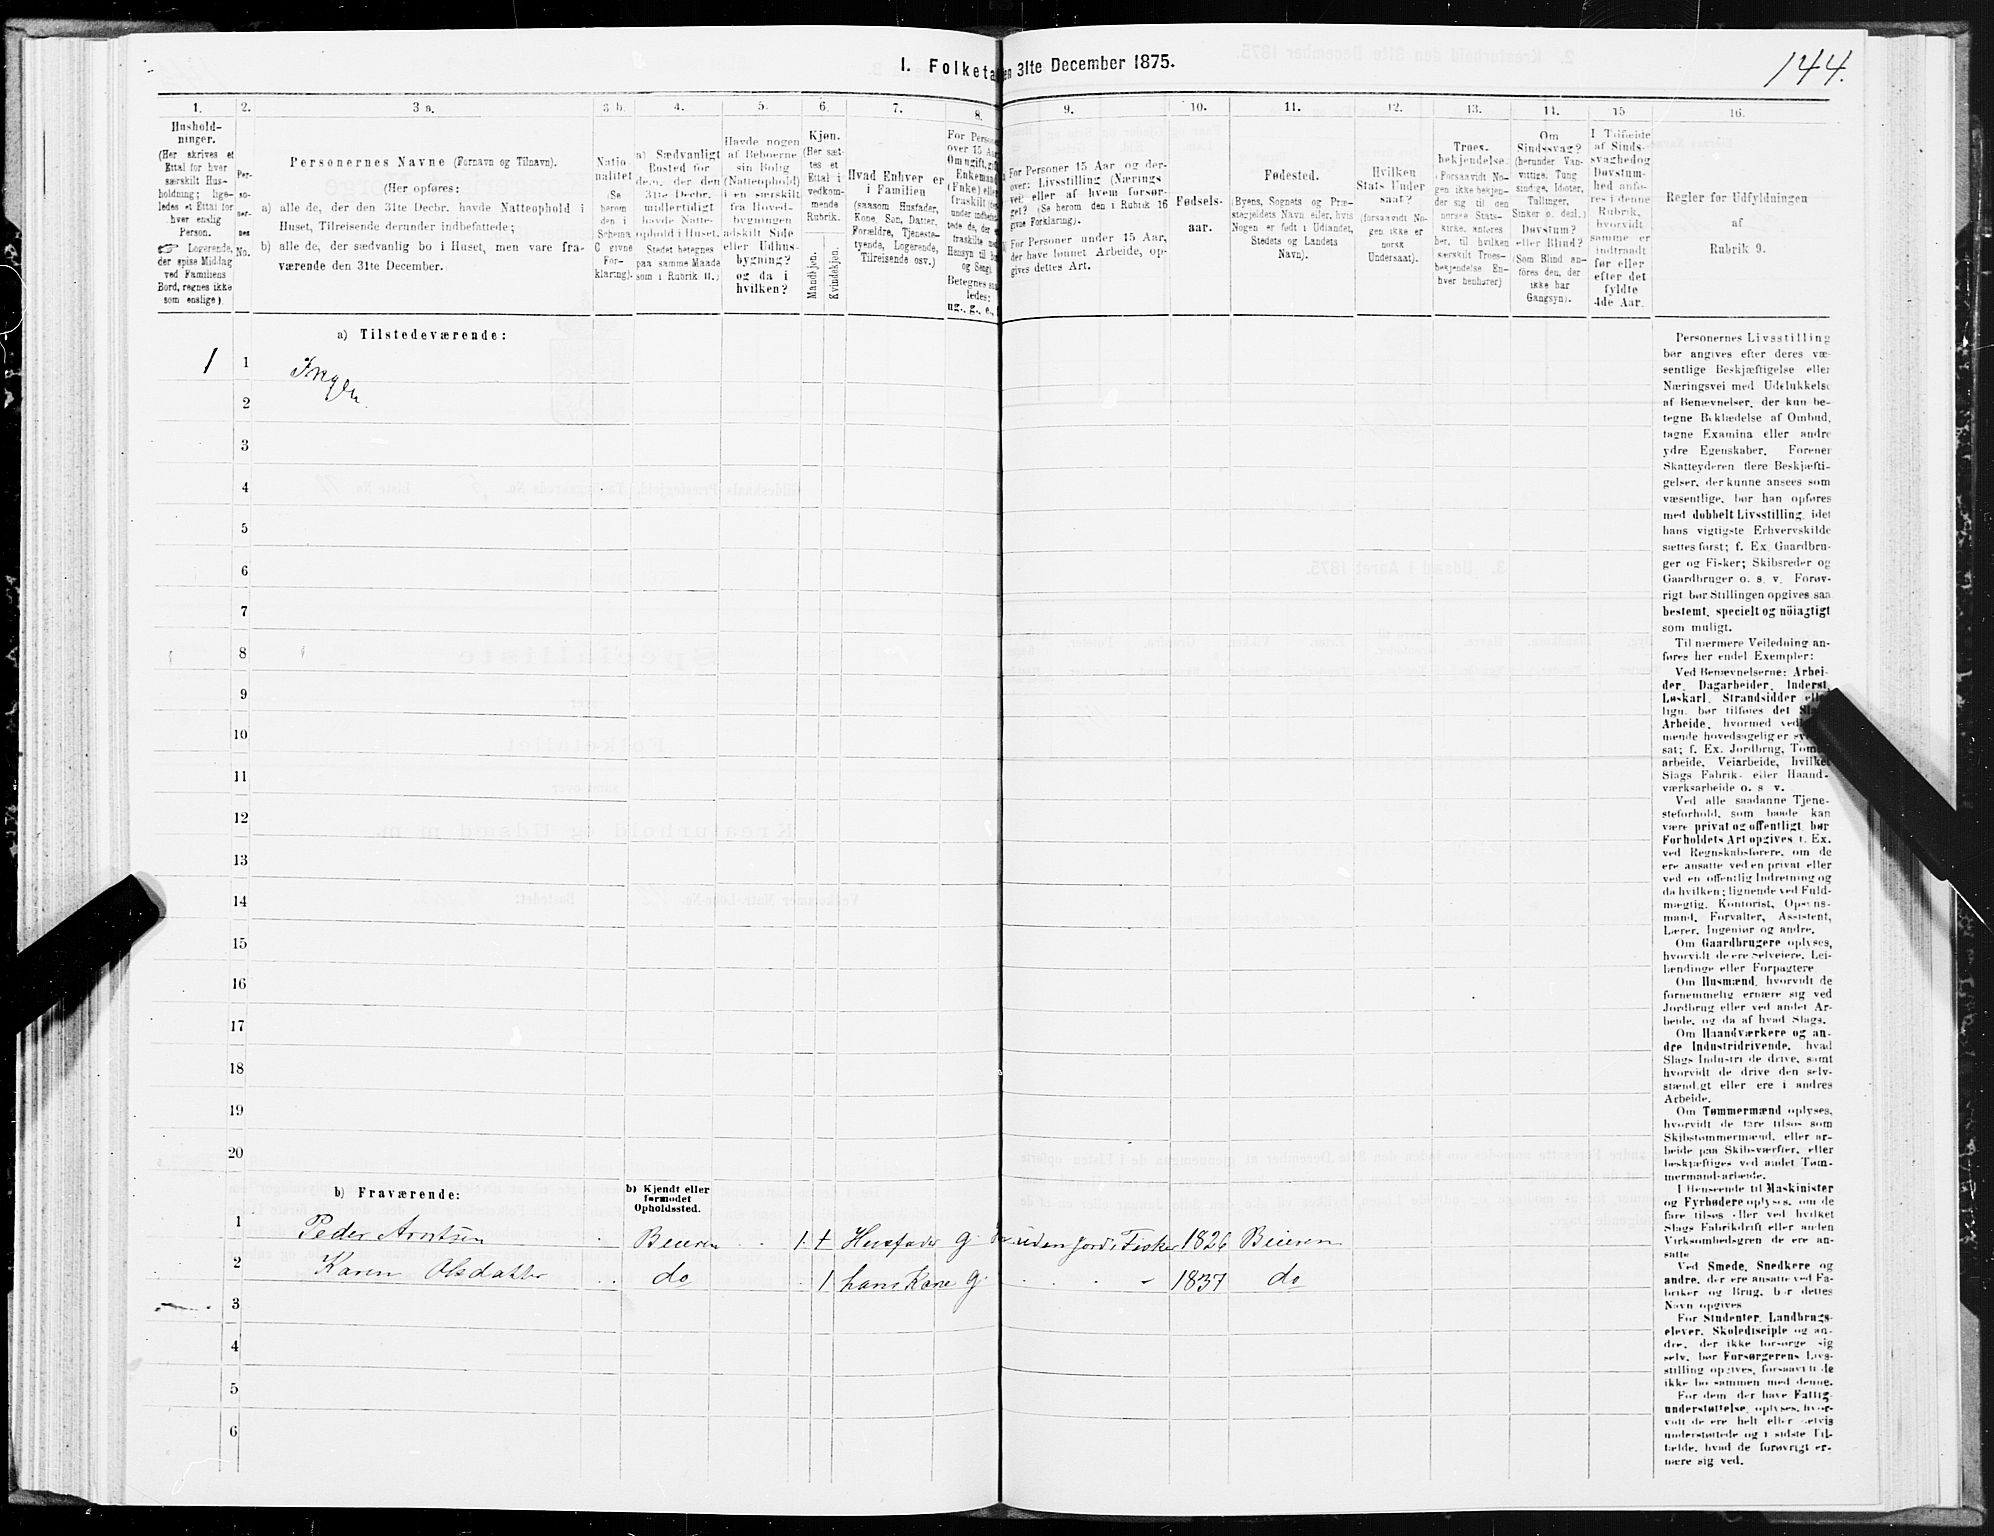 144.
I. Folketal den 31te December 1875.
1. 2. 3 a. 3 b. 4. 5. 6. 7. 8. 9. 10. 11. 12. 13. 14. 15 16.
Hushold-
ninger.
(Her skrives et
Ettal for hver
særskilt Hus-
holdning; lige-
ledes et Ettal for
hver enslig
Person.
Logerende,
der spise Middag
ved Familiens
Bord, regnes ikke
som enslige).
Per-
so-
ner-
nes
No.
Personernes Navne (Fornavn og Tilnavn).
(Her opføres:
a) alle de, der den 31te Decbr. havde Natteophold i
Huset, Tilreisende derunder indbefattede;
b) alle de, der sædvanlig bo i Huset, men vare fra-
værende den 31te December.
Natio
nalitet
(Se
herom
den i
Schema
C givne
For-
klaring).
a) Sædvanligt
Bosted for
dem, der den
31te Decbr.
midlertidigt
havde Natte-
ophold i Huset.
Stedet betegnes
paa samme Maade
som i Rubrik 11.)
Havde nogen
af Beboerne
sin Bolig
(Natteophold)
i en særskilt
fra Hoved-
bygningen
adskilt Side
eller Udhus-
bygning?
og da i
hvilken?
Kjøn.
(Her sæt-
tes et
Ettal i
vedkom-
mende
Rubrik.
Mandkjøn.
Kvindekjøn.
Hvad Enhver er
i Familien
(saasom Husfader,
Kone, Søn, Datter,
Forældre, Tjeneste-
tyende, Logerende,
Tilreisende osv.)
For Person
over 15 Aa
Om ugift, gif
Enkemand
(Enke) elle
fraskilt
under indbefat
tede de, der e
fraskilte me
Hensyn til bo
og Seng).
Betegnes saa
ledes:
ug., g., e.,
For Personer 15 Aar og der-
over: Livsstilling (Nærings
vei) eller af hvem forsør-
get? (Se herom den i Rubrik 16
givne Forklaring).
For Personer under 15 Aar,
der have lønnet Arbeide, op-
gives dettes Art.
Fødsels-
aar.
Fødested.
(Byens, Sognets og Præ-
stegjeldets Navn eller, hvis
Nogen er født i Udlandet,
Stedets og Landets
Navn).
Hvilken
Stats Under
saat?
(forsaavidt No-
gen ikke er
norsk
Undersaat).
Troes-
bekjendelse.
(Forsaavidt No-
gen ikke bekjen-
der sig til den
norske Stats-
kirke, anføres
her, til hvilken
særskilt Troes-
bekjendelse En-
hver henhører)
Om
Sindssvag?
(herunder Van-
vittige, Tung
sindige, Idioter,
Tullinger,
Sinker o. desl.)
Døvstum?
eller Blind?
(Som Blind an-
føres den, der
ikke har
Gangsyn).
I Tilfælde
af Sinds-
svaghed og
Døvstum-
hed anfø-
res i denne
Rubrik,
hvorvidt
samme er
indtraadt
før eller
efter det
fyldte
4de Aar.
Regler for Udfyldningen
af
Rubrik 9.
a) Tilstedeværende:
1 1 Ingen
2
3
4
5
6
7
8
9
10
11
12
13
14
15
16
17
18
19
20
b) Fraværende:
b) Kjendt eller
formodet
Opholdssted.
1 Peder Arntsen Beieren 1 Husfader g. uden Jord, Fisker 1826 Beieren
2 Karen Olsdatter do 1 hans Kone g. 1837 do
3
4
5
6
Personernes Livsstilling
bør angives efter deres væ-
sentlige Beskjæftigelse eller
Næringsvei med Udelukkelse
af Benævnelser, der kun be-
tegne Beklædelse af Ombud,
tagne Examina eller andre
ydre Egenskaber. Forener
Skatteyderen flere Beskjæfti-
gelser, der kunne ansees som
væsentlige, bør han opføres
med dobbelt Livsstilling, idet
hans vigtigste Erhvervskilde
sættes først; f. Ex. Gaardbru-
ger og Fisker; Skibsreder og
Gaardbruger o. s. v. Forøv-
rigt bør Stillingen opgives saa
bestemt, specielt og nöiagtigt
som muligt.
Til nærmere Veiledning an-
føres her endel Exempler:
Ved Benævnelserne: Arbei-
der, Dagarbeider, Inderst,
Løskarl, Strandsidder eller
lign. bør tilføies det Slags
Arbeide, hvormed vedkom-
mende hovedsagelig er syssel-
sat; f. Ex. Jordbrug, Tømmer-
arbeide, Veiarbeide, hvilket
Slags Fabrik- eller Haand-
værksarbeide o. s. v.
Ved alle saadanne Tjene-
steforhold, som baade kan
være privat og offentligt, bør
Forholdets Art opgives, f. Ex.
ved Regnskabsførere, om de
ere ansatte ved en privat eller
ved en offentlig Indretning og
da hvilken; lignende ved Fuld-
mægtig, Kontorist, Opsyns-
mand, Forvalter, Assistent,
Lærer, Ingeniør og andre.
Om Gaardbrugere oplyses,
hvorvidt de ere Selveiere, Lei-
lændinge eller Forpagtere.
Om Husmænd, hvorvidt de
fornemmelig ernære sig ved
Jordbrug eller ved andet Ar-
beide, og da af hvad Slags.
Om Haandværkere og an-
dre Industridrivende, hvad
Slags Industri de drive, samt
hvorvidt de drive den selv-
stændigt eller ere i andres
Arbeide.
Om Tømmermænd oplyses,
hvorvidt de fare tilsøs som
Skibstømmermænd, eller ar-
beide paa Skibsværfter, eller
beskjæftiges ved andet Tøm-
mermandsarbeide.
I Henseende til Maskinister
og Fyrbødere oplyses, om de
fare tilsøs eller ved hvilket
Slags Fabrikdrift eller anden
Virksomhedsgren de ere an-
satte.
Ved Smede, Snedkere og
andre, der ere ansatte ved Fa-
briker og Brug, bør dettes
Navn opgives
For Studenter, Landbrugs-
elever, Skoledisciple og an-
dre, der ikke forsørge sig
selv, bør Forsørgerens Livs-
stilling opgives, forsaavidt de
ikke bo sammen med denne.
For dem, der have Fattig-
understøttelse, oplyses, hvor-
vidt de ere helt eller delvis
understøttede og i sidste Til-
fælde, hvad de forøvrigt er-
nære sig ved.